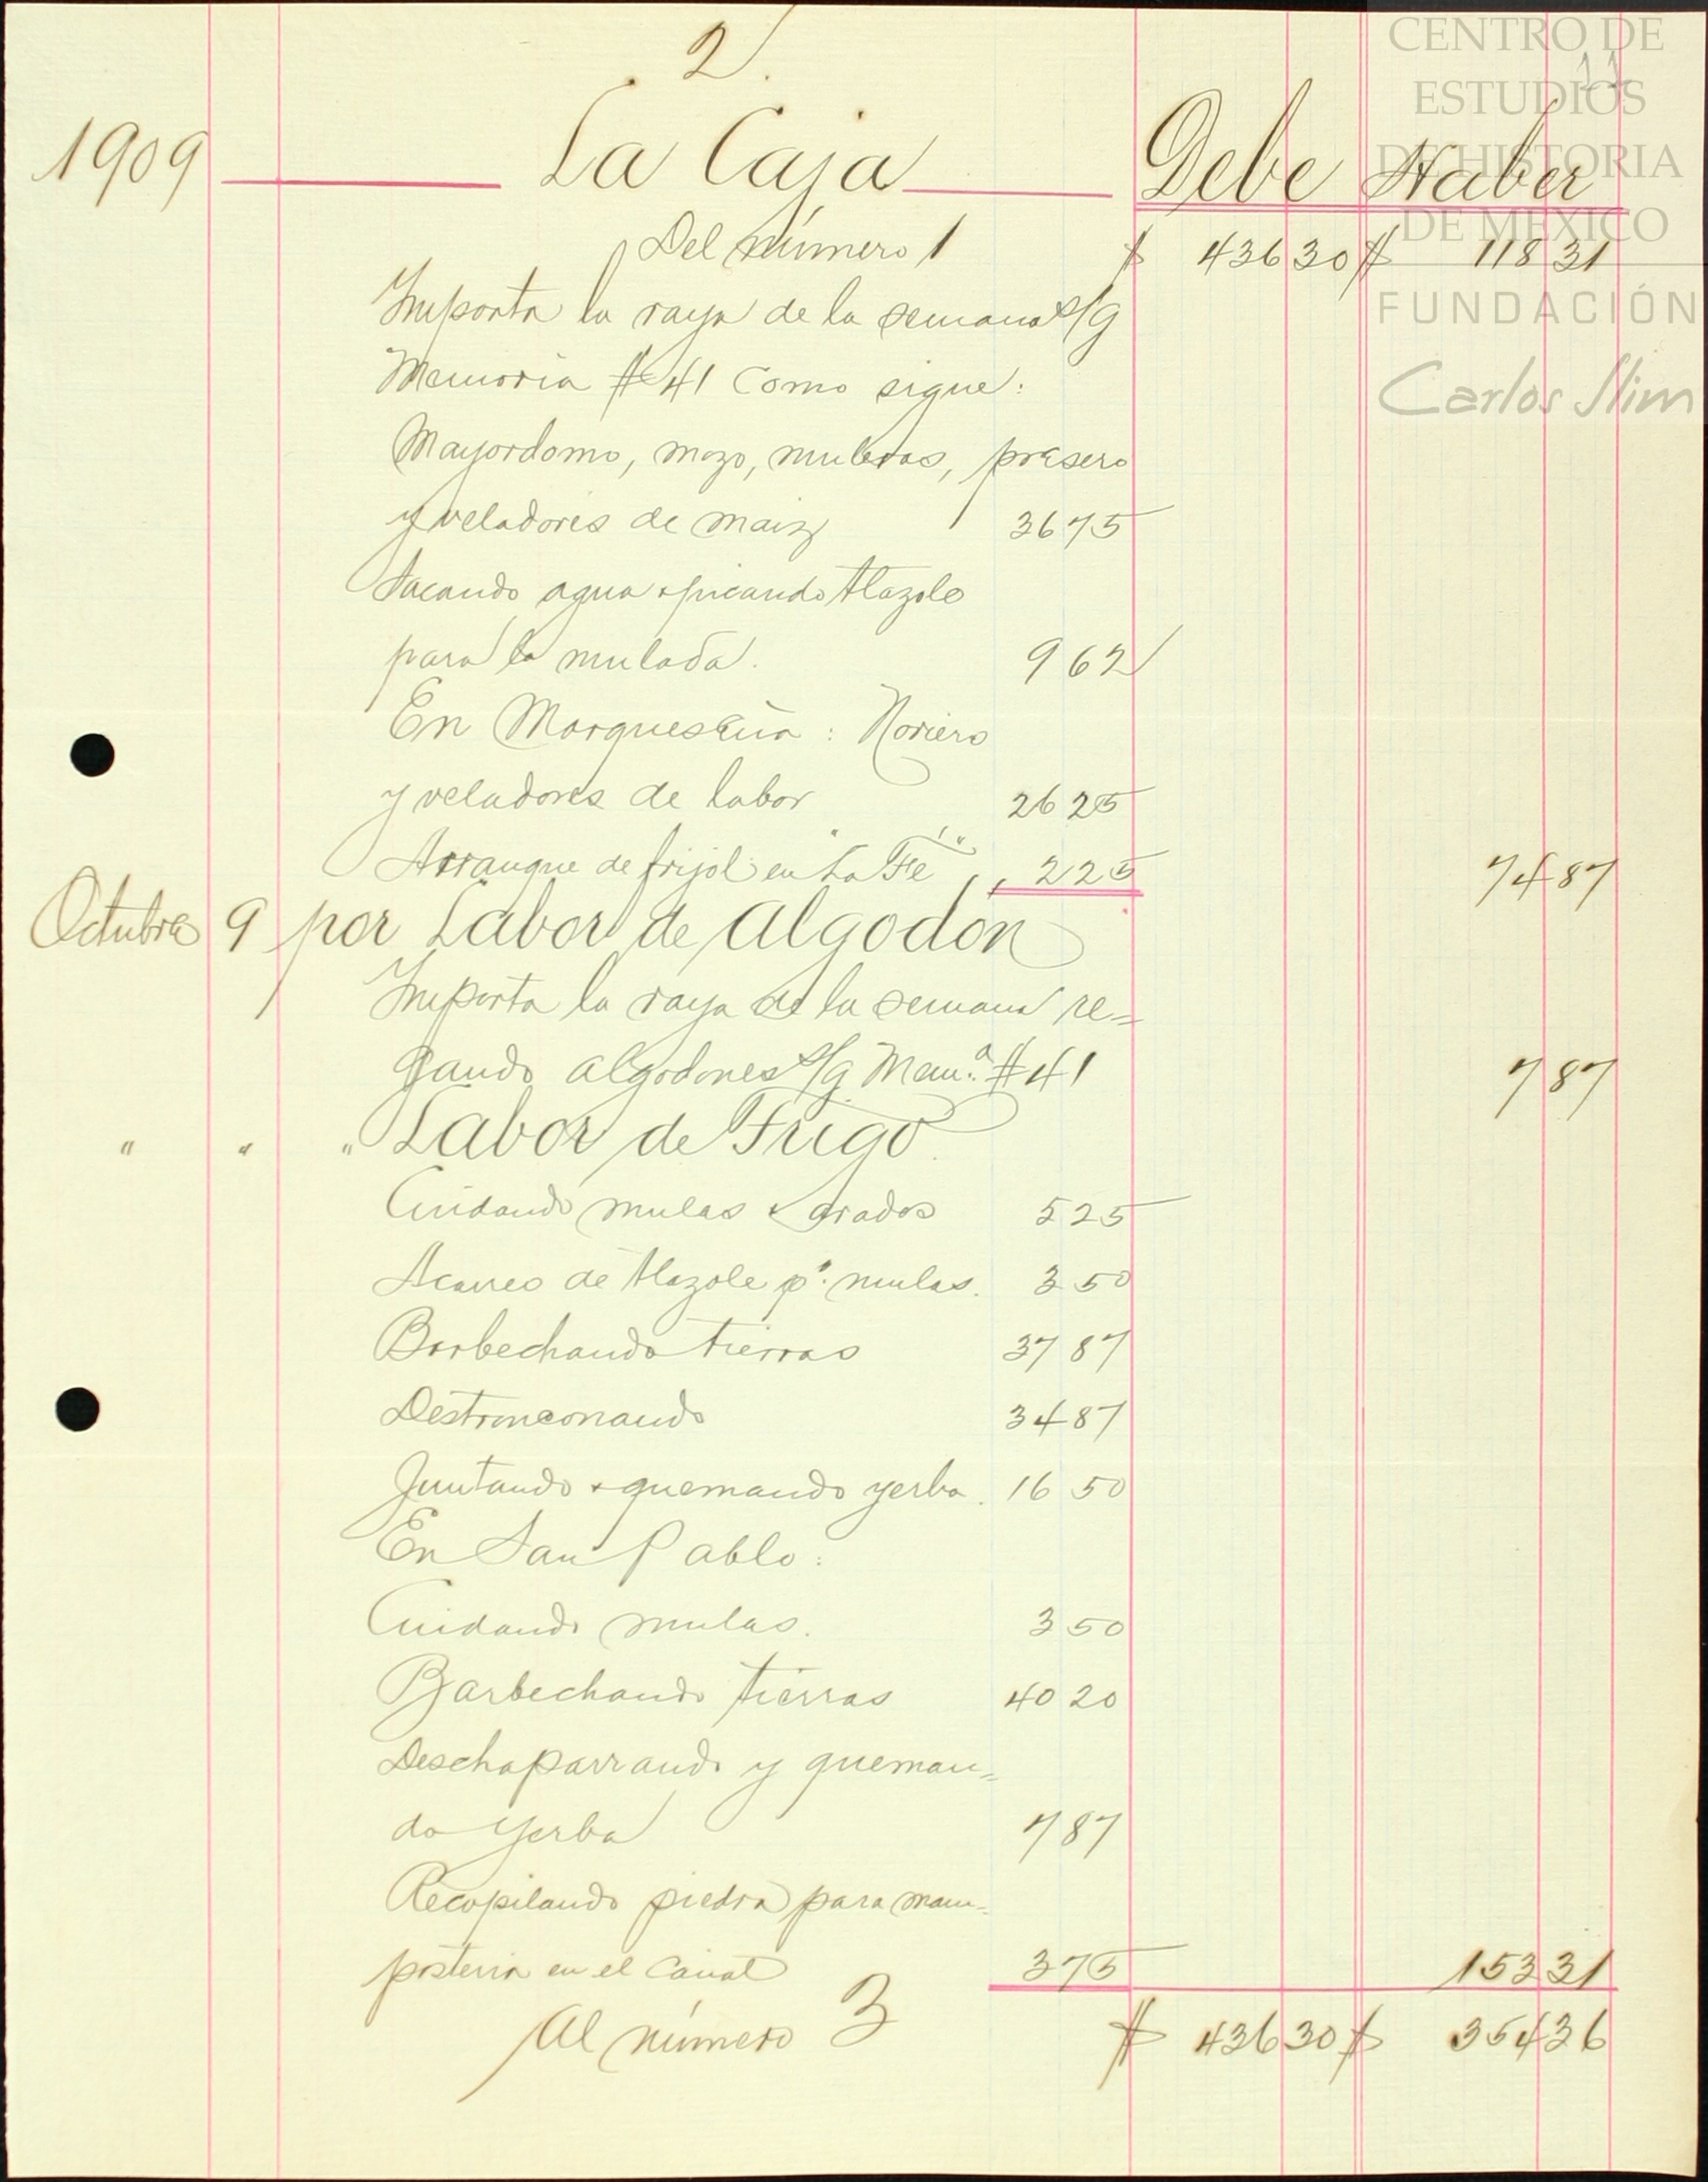 2.
11
CENTRO DE
ESTUDIOS
DE HISTORIA
DE MÉXICO
FUNDACIÓN
Carlos Slim
1909 La Caja Debe Haber
Del número 1 $ 436 30 $ 118 31
Importa la raya de la semana s/g
Memoria # 41 Como sigue:
Mayordomo, mozo, muleros, presero
y veladores de maiz 36 75
Sacando agua & picando tlazole
para la mulada. 9 62
En Marqueseña: Noriero
y veladores de labor 26 25
Arranque de frijol en "La Fé" 2 25 74 87
Octubre 9 por Labor de Algodon
Importa la raya de la semana re=
gando algodones s/g Mem.ª # 41 7 87
" " " Labor de Trigo.
Cuidando mulas & arados 5 25
Acarreo de tlazole p.ª mulas. 3 50
Barbechando tierras 37 87
Destronconando 34 87
Juntando & quemando yerba. 16 50
En San Pablo:
Cuidando mulas. 3 50
Barbechando tierras 40 20
Deschaparrando y queman=
do yerba 7 87
Recopilando piedra para mam=
posteria en el Canal 3 75 153 31
Al número 3 $ 436 30 $ 354 36